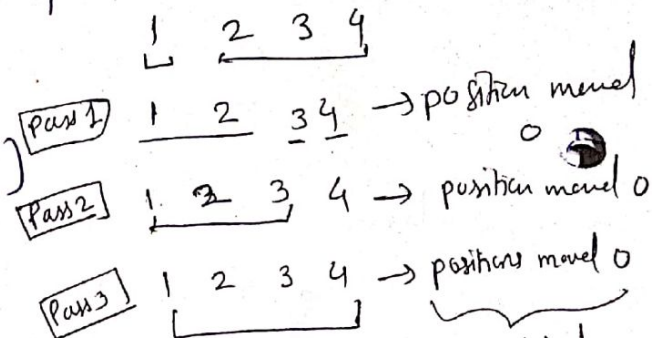 1 2 3 4
Pass 1 1 2 3 4 → position moved 0
Pass 2 1 2 3 4 → position moved 0
Pass 3 1 2 3 4 → positions moved 0